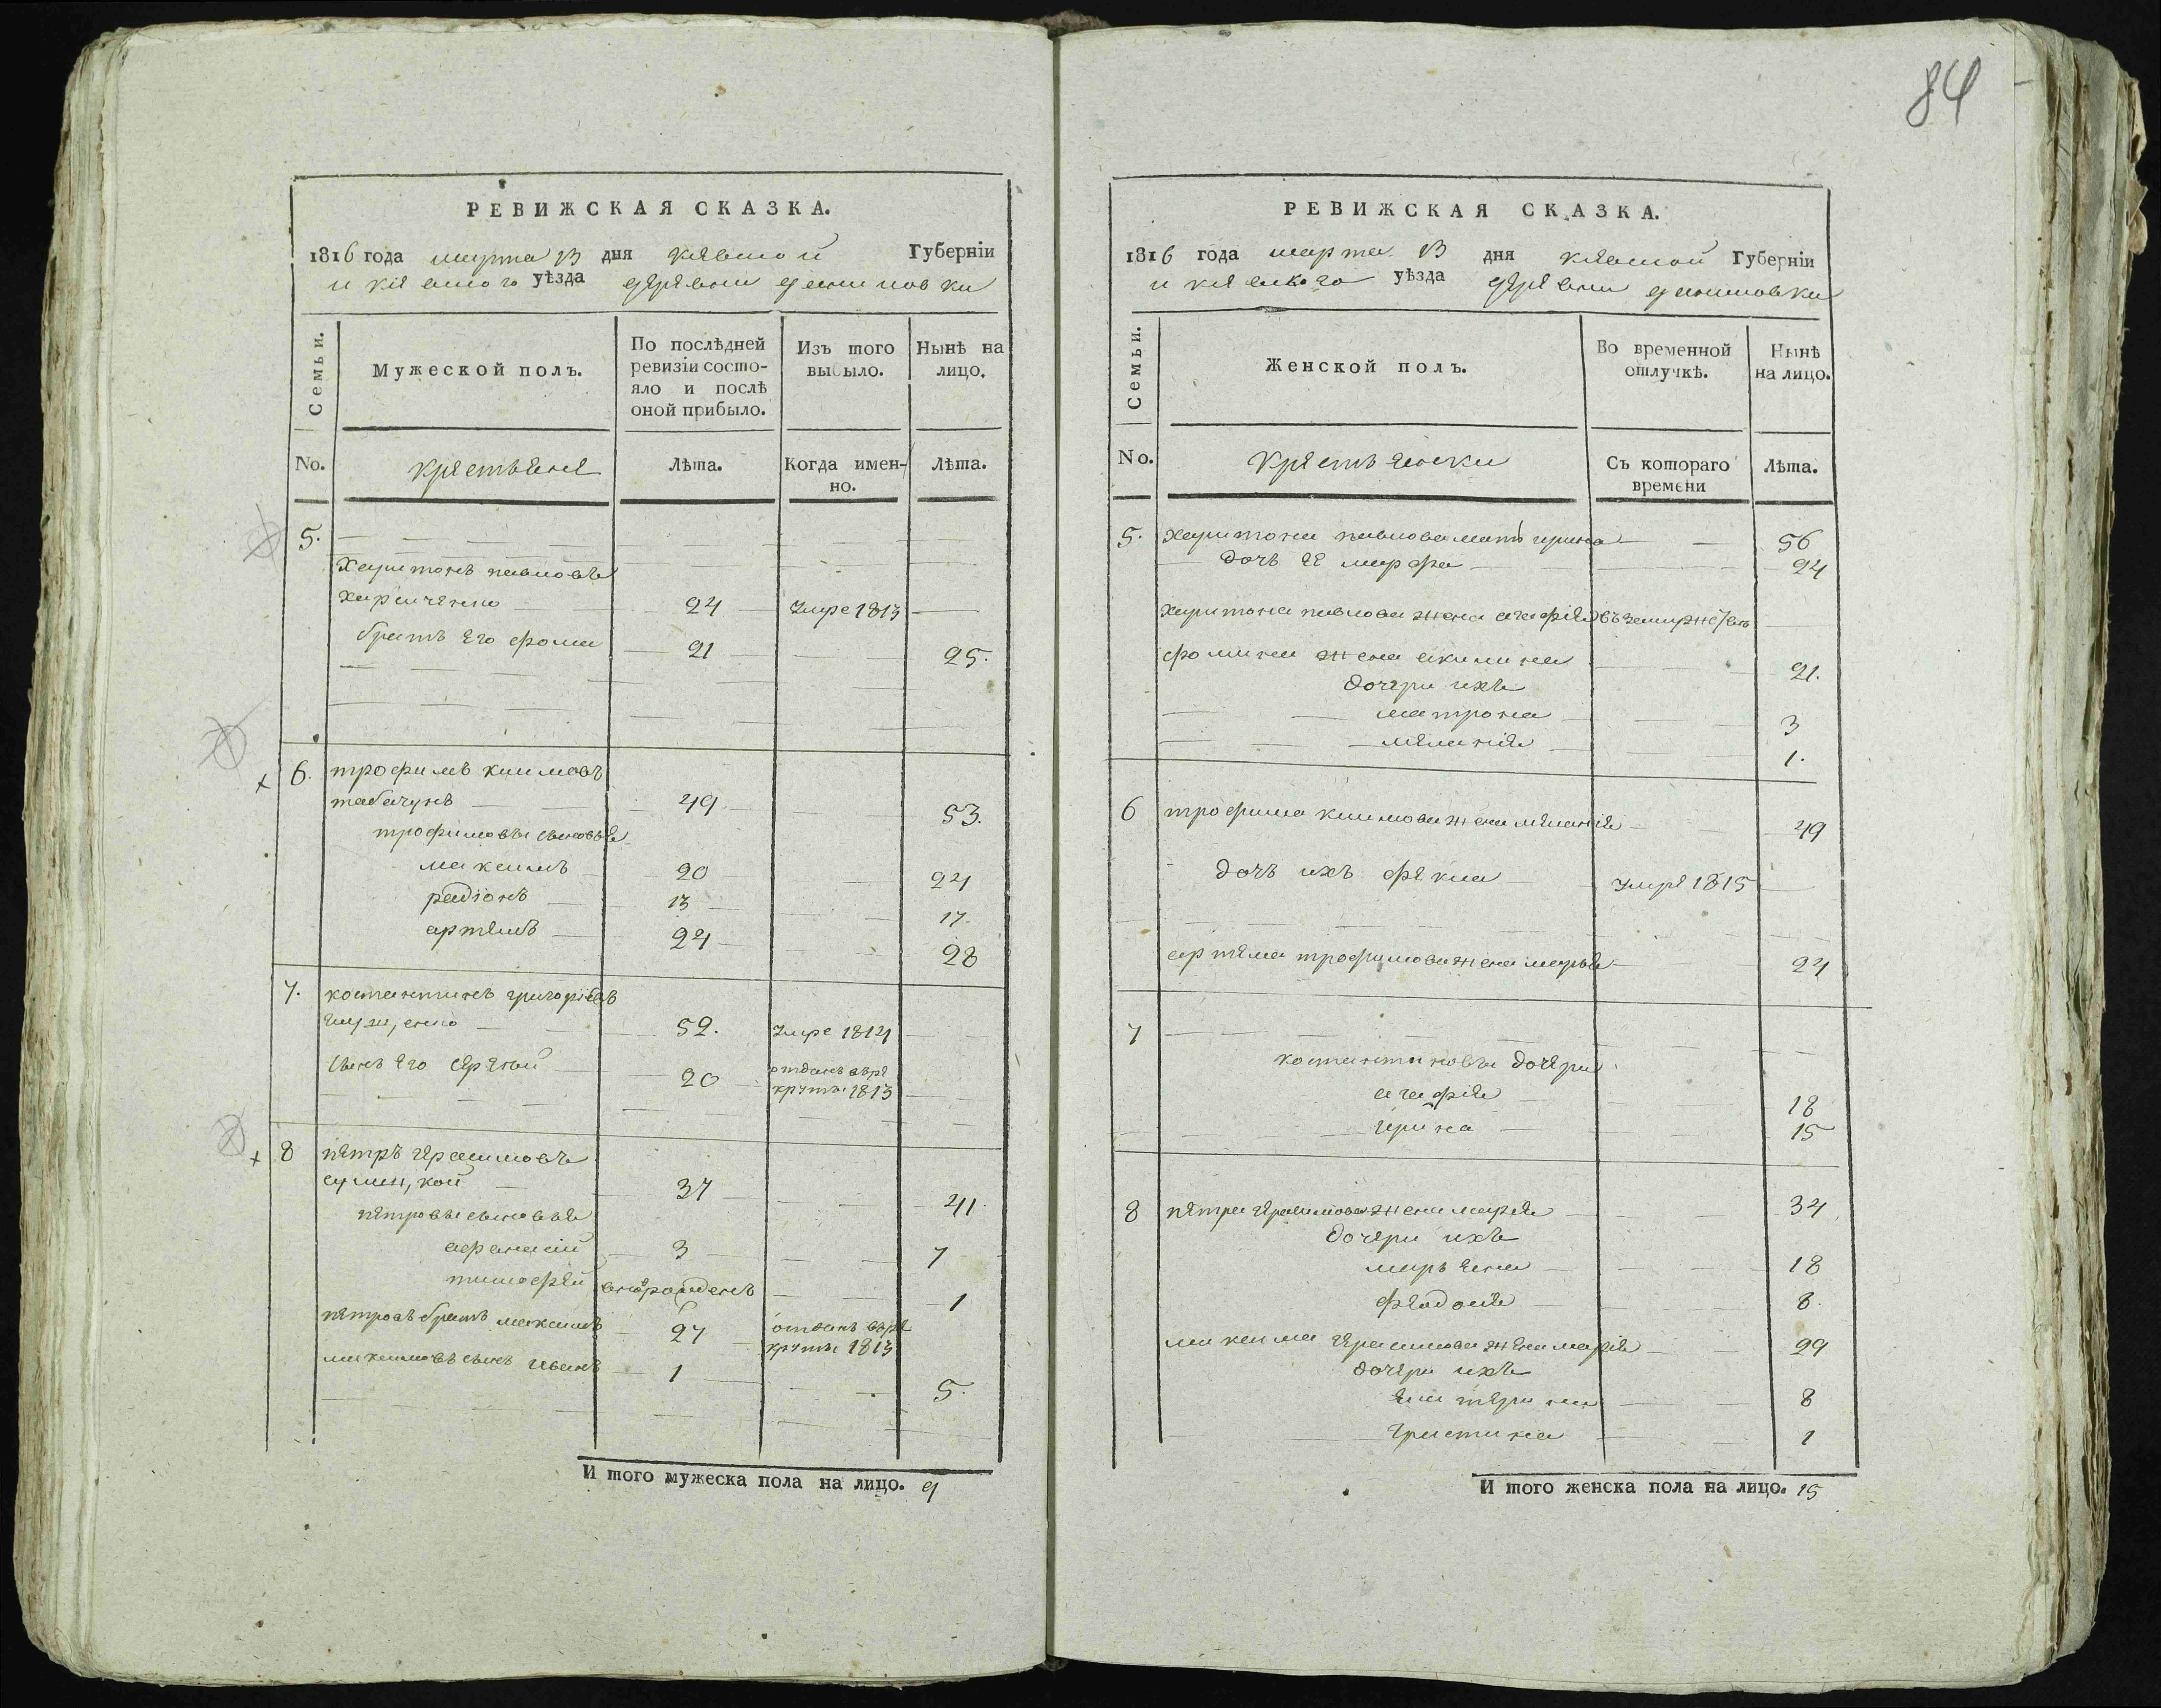 84
РЕВИЖСКАЯ СКАЗКА.
1816 года марта 13 дня киевской Губерніи
и киевского уѣзда деревни
Семьи.
Мужеской полъ.
По послѣдней ревизіи состо-
яло и послѣ
оной прибыло.
Изъ того
выбыло.
Нынѣ на
лицо.
No.
крестьяне
Лѣта.
Когда имен-
но.
Лѣта.
5.
Харитонъ павловъ
харченко 24 умре 1813
братъ его фома 21 25.
6. трофимъ климовъ
табачукъ 49 53.
трофимовы сыновья
максимъ 20 24
радіонъ 13 17.
артемъ 24 28
7. костантинъ григоріевъ
52. умре 1814
сынъ его сергей 20 отданъ врекруты 1813
8 петръ герасимовъ
37 41.
петровы сыновья
афанасій 3 7
тимофей новорожденъ 1
петровъ братъ максимъ 27 отданъ врекруты 1813
максимовъ сынъ иванъ 1 5.
И того мужеска пола на лицо. 9
РЕВИЖСКАЯ СКАЗКА.
1816 года марта 13 дня киевской Губерніи
и киевского уѣзда деревни
Семьи.
Женской полъ.
Во временной
отлучкѣ.
Нынѣ
на лицо.
No.
крестьянски
Съ котораго
времени
Лѣта.
5. харитона павлова мать ирина 56
дочь ее марфа 24
харитона павлова жена агафія въ замужстве
фомина жена акилина 21.
дочери ихъ
матрона 3
меланія 1.
6 трофима климова жена меланія 49
дочь ихъ фекла умре 1815
артема трофимова жена марья 24
7
костантиновы дочери
агафія 18
ирина 15
8 петра герасимова жена марія 34
дочери ихъ
марьяна 18
феодосія 8.
максима герасимова жена марія 29
дочери ихъ
екатерина 8
христина 1
И того женска пола на лицо. 15